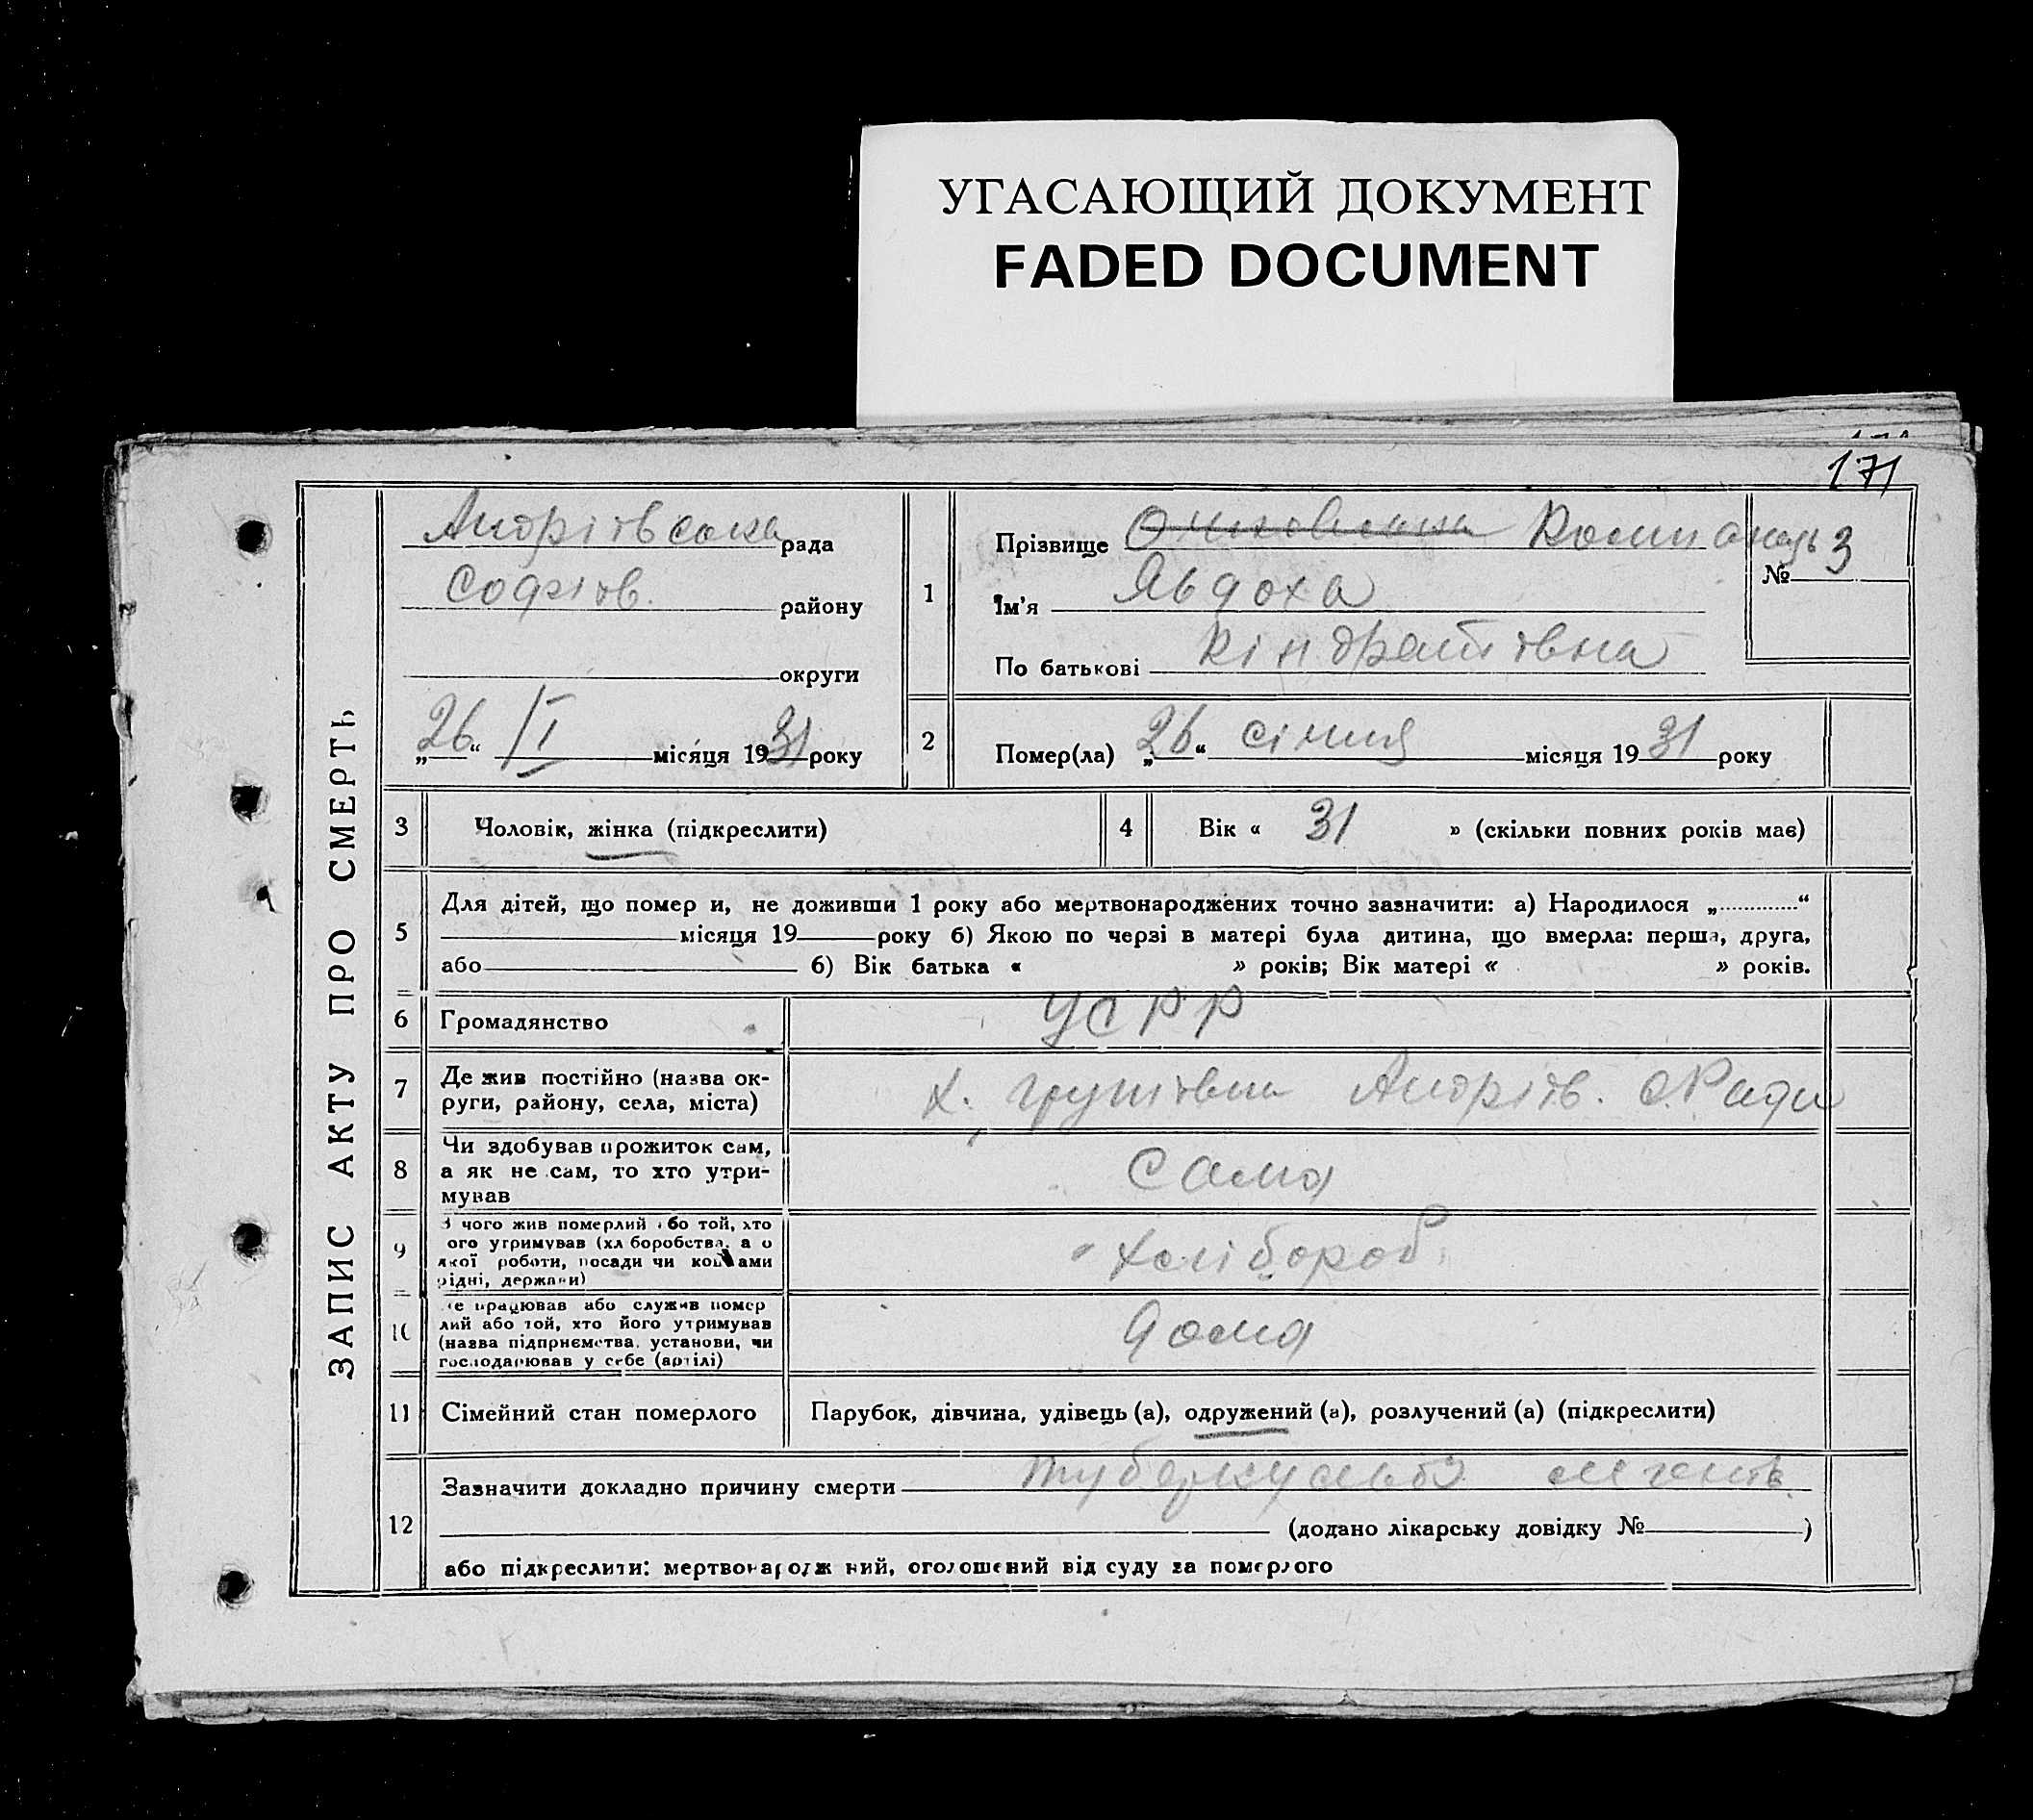 УГАСАЮЩИЙ ДОКУМЕНТ
FADED DOCUMENT
171
ЗАПИС АКТУ ПРО СМЕРТЬ
Андріівська рада
Софіів. району
округи
„26“ /I місяця 1931 року
1
Прізвище
№ 3
Ім'я Явдоха
По батькові Кіндратівна
2 Помер(ла) „26“ січня місяця 1931 року
3 Чоловік, жінка (підкреслити)
4 Вік « 31 » (скільки повних років має)
5 Для дітей, що помер и, не доживши 1 року або мертвонароджених точно зазначити: а) Народилося „............“
місяця 19 року б) Якою по черзі в матері була дитина, що вмерла: перша, друга,
або б) Вік батька « » років; Вік матері « » років.
6 Громадянство УСРР
7 Де жив постійно (назва ок-
руги, району, села, міста) х. Андріів. С.Ради
8 Чи здобував прожиток сам,
а як не сам, то хто утри-
мував Сама
9 З чого жив померлий або той, хто
ого утримував (хл боробства, а о
якої роботи, посади чи коштами
рідні, держави) хлібороб
10 е працював або служив помер
лий або той, хто його утримував
(назва підприємства, установи, чи
господарював у себе (артілі) дома
11 Сімейний стан померлого Парубок, дівчина, удівець (а), одружений (а), розлучений (а) (підкреслити)
12 Зазначити докладно причину смерти туберкульоз легень
(додано лікарську довідку № )
або підкреслити: мертвонародж ний, оголошений від суду за померлого